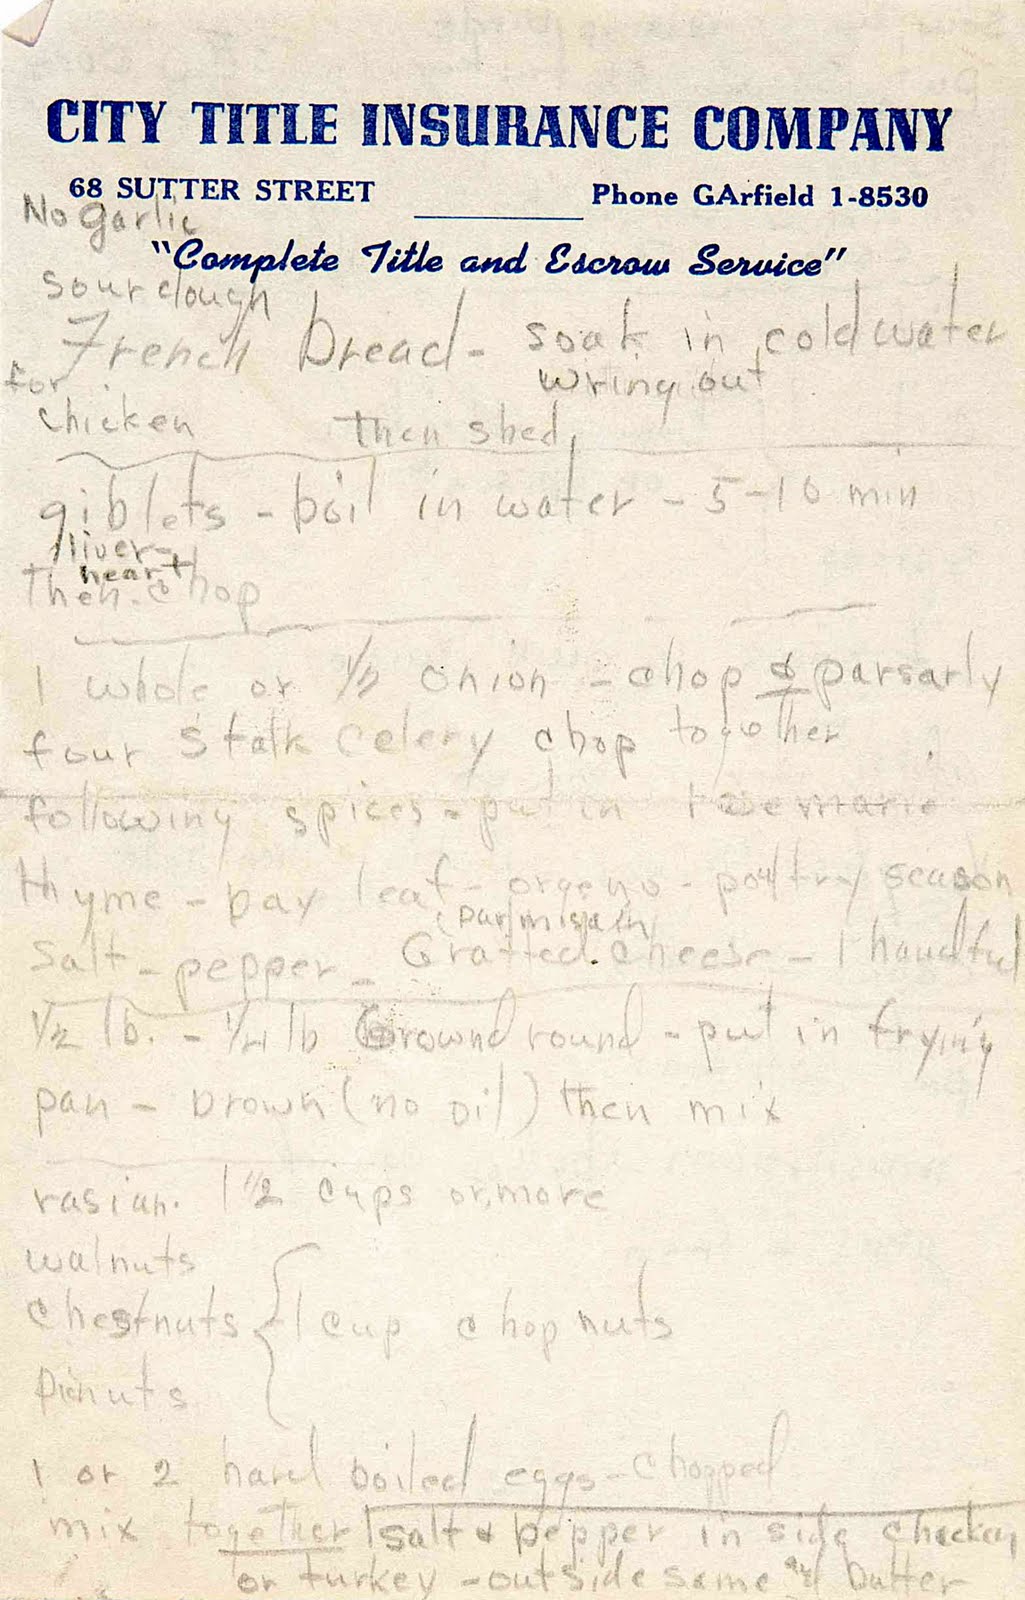 CITY TITLE INSURANCE COMPANY
68 SUTTER STREET Phone GArfield 1-8530
No garlic
"Complete Title and Escrow Service"
sour dough
French bread - soak in cold water
for wring out
chicken then shed
giblets - boil in water - 5-10 min
liver -
heart
then chop
1 whole or 1/2 onion - chop & parsarly
four stalk celery chop together
following spices - put in rosemarie
thyme - bay leaf - orgeno - poultry season
(parmisain)
salt - pepper - Gratted cheese - 1 handful
1/2 lb. - 1/4 lb Ground round - put in frying
pan - brown (no oil) then mix
rasian. 1 1/2 cups or more
walnuts
chestnuts { 1 cup chop nuts
pienuts
1 or 2 hard boiled eggs - chopped
mix together salt & pepper in side chicken
or turkey - outside same and butter